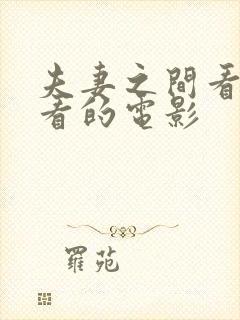 夫妻之間看
看的電影
羅苑